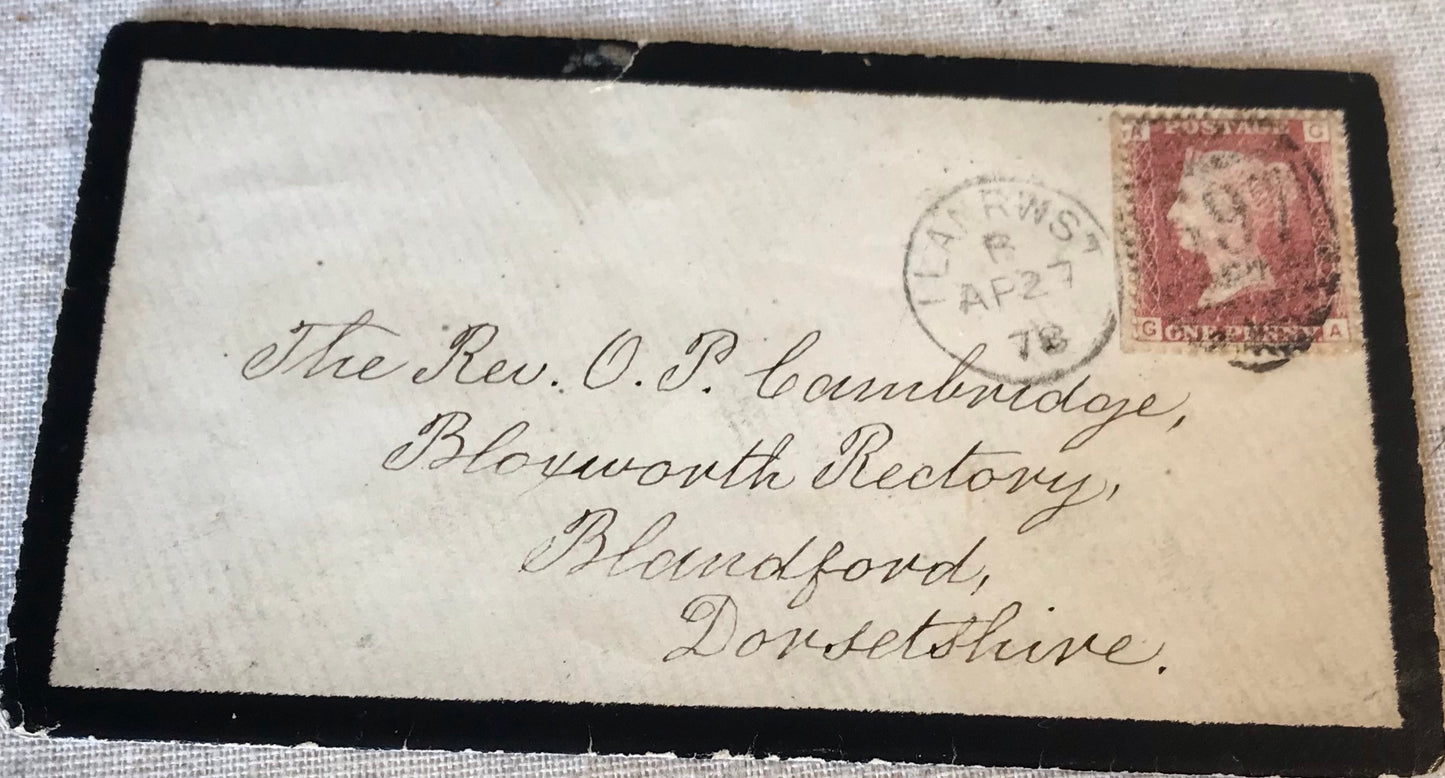 A POSTAGE G
97
G ONE PENNY A
LLANRWST
B
AP 27
78
The Rev. O. P. Cambridge,
Bloxworth Rectory,
Blandford,
Dorsetshire.